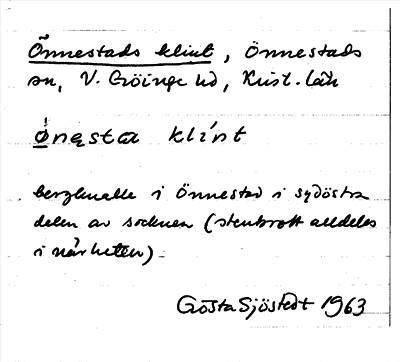 Önnestads klint, Önnestads
sn, V. Göinge hd, Krist. län
ǿnęsta klínt
bergknalle i Önnestad i sydöstra
delen av socknen (stenbrott alldeles
i närheten)
Gösta Sjöstedt 1963